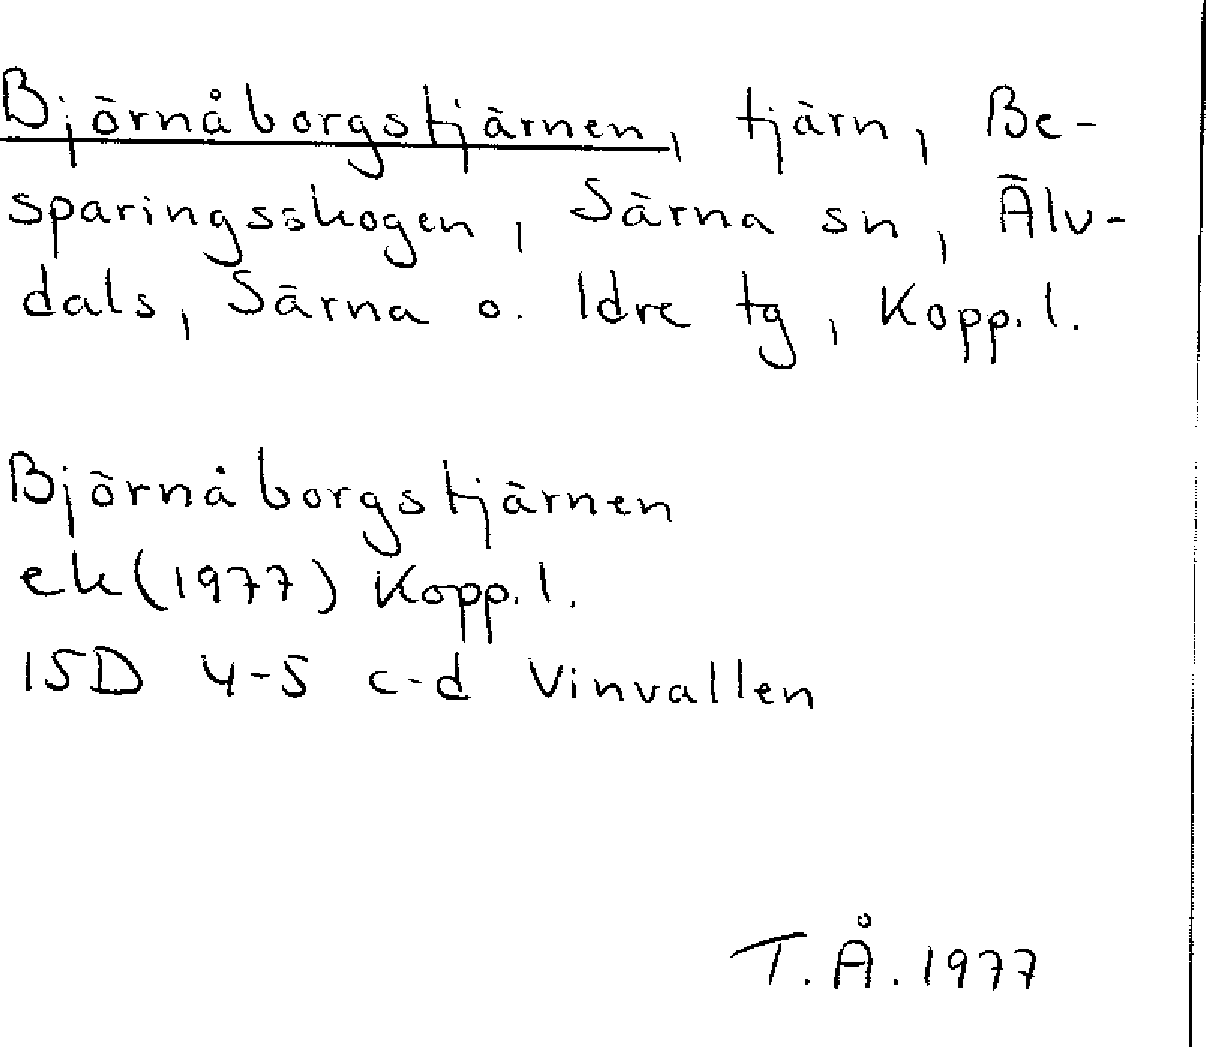 Björnåborgstjärnen, tjärn, Be-
sparingsskogen, Särna sn, Älv-
dals, Särna o. Idre tg, Kopp. l.
Björnåborgstjärnen
ek (1977) Kopp. l.
15D 4-5 c-d Vinvallen
T.Å. 1977